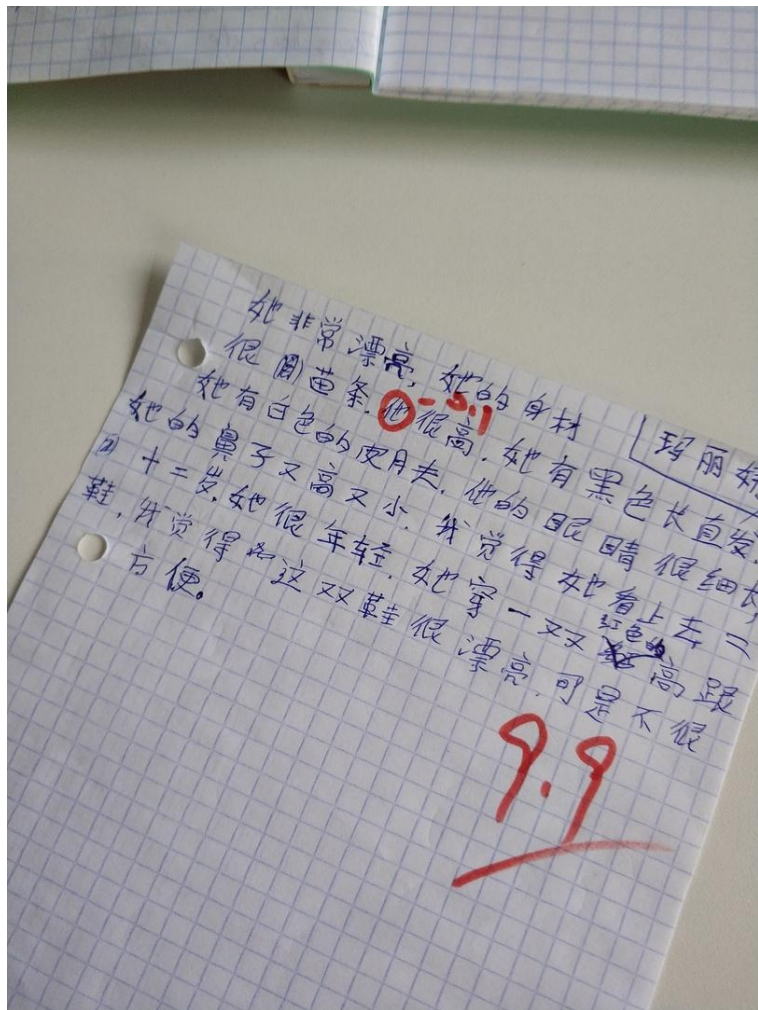 她非常漂亮, 她的身材
玛丽娇
很苗条. 他很高. 她有黑色长直发.
-0.1
她有白色的皮肤. 他的眼睛很细长,
她的鼻子又高又小. 我觉得她看上去二
十二岁. 她很年轻. 她穿一双红色的高跟
鞋. 我觉得这双鞋很漂亮, 可是不很
方便。
9.9